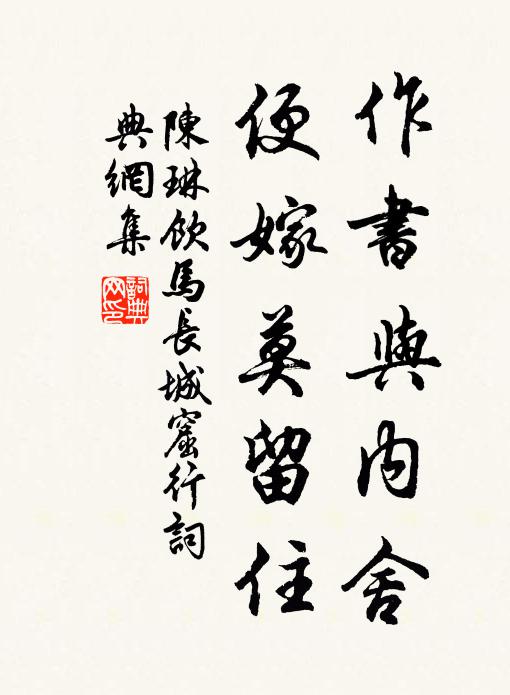 作書與內舍
便嫁莫留住
陳琳飲馬長城窟行詞
典網集
詞典
网印